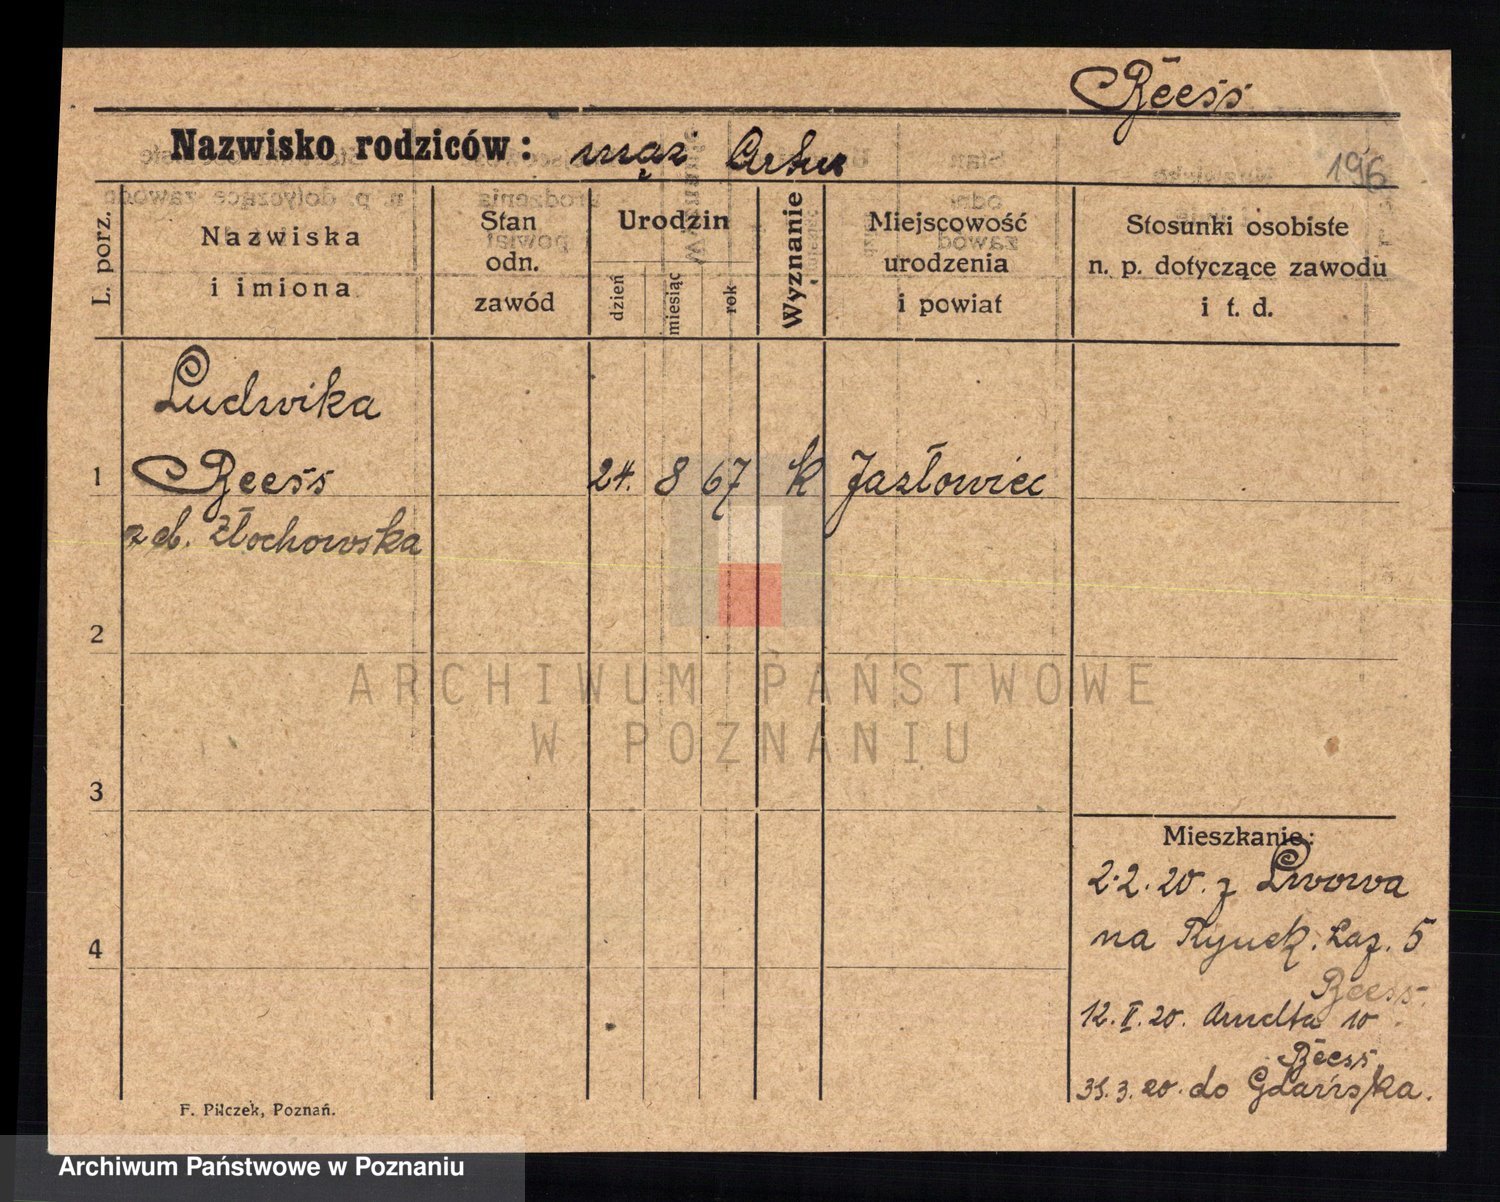 Reess
Nazwisko rodziców: mąż Artur
196
L. porz.
Nazwiska
i imiona
Stan
odn.
zawód
Urodzin
dzień
miesiąc
rok
Wyznanie
Miejscowość
urodzenia
i powiat
Stosunki osobiste
n. p. dotyczące zawodu
i t. d.
Ludwika
1 Reess 24. 8 67 k Jazłowiec
z d. Złochowska
2
3
4
ARCHIWUM PAŃSTWOWE
W POZNANIU
Mieszkanie:
2.2.20. z Lwowa
na Rynek. Łaz. 5
Reess.
12.II.20. 10
Reess
31.3.20. do Gdańska.
F. Pilczek, Poznań.
Archiwum Państwowe w Poznaniu